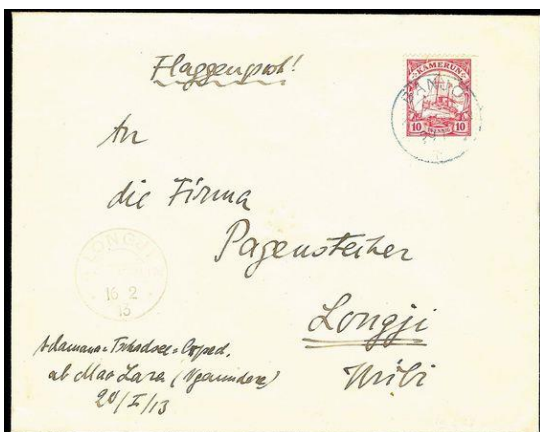 Flaggenpost!
KAMERUN
10 PFENNIG 10
An
die Firma
Pagenstecher
Longji
LONGJI
16 2
13
Adamaua = Tschadsee = Exped.
ab Mao Lara (Ngaundere)
20/I/13